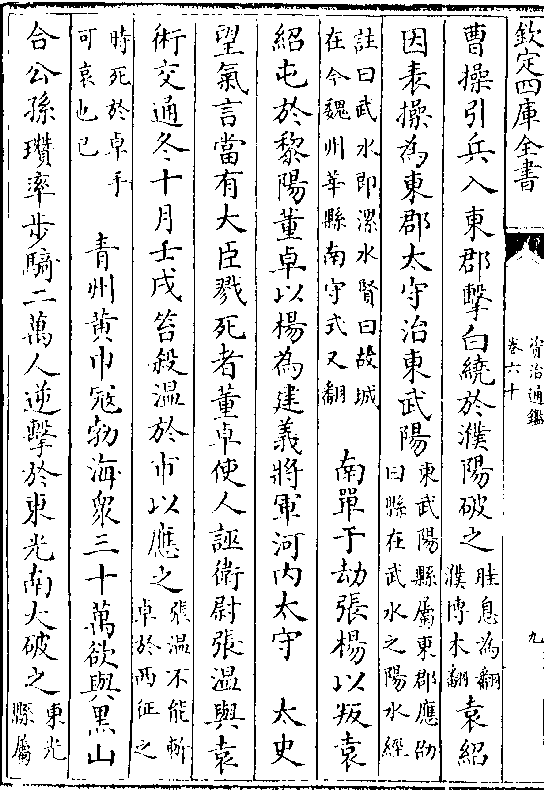 欽定四庫全書
資治通鑑
卷六十
九
曹操引兵入東郡擊白繞於濮陽破之
眭息為翻
濮博木翻
袁紹
因表操為東郡太守治東武陽
東武陽縣屬東郡應劭
曰縣在武水之陽水經
註曰武水即漯水賢曰故城
在今魏州莘縣南守式又翻
南單于劫張楊以叛袁
紹屯於黎陽董卓以楊為建義將軍河內太守 太史
望氣言當有大臣戮死者董卓使人誣衛尉張溫與袁
術交通冬十月壬戌笞殺溫於市以應之
張溫不能斬
卓於西征之
時死於卓手
可哀也已
青州黃巾寇勃海衆三十萬欲與黑山
合公孫瓚率步騎二萬人逆擊於東光南大破之
東光
縣屬